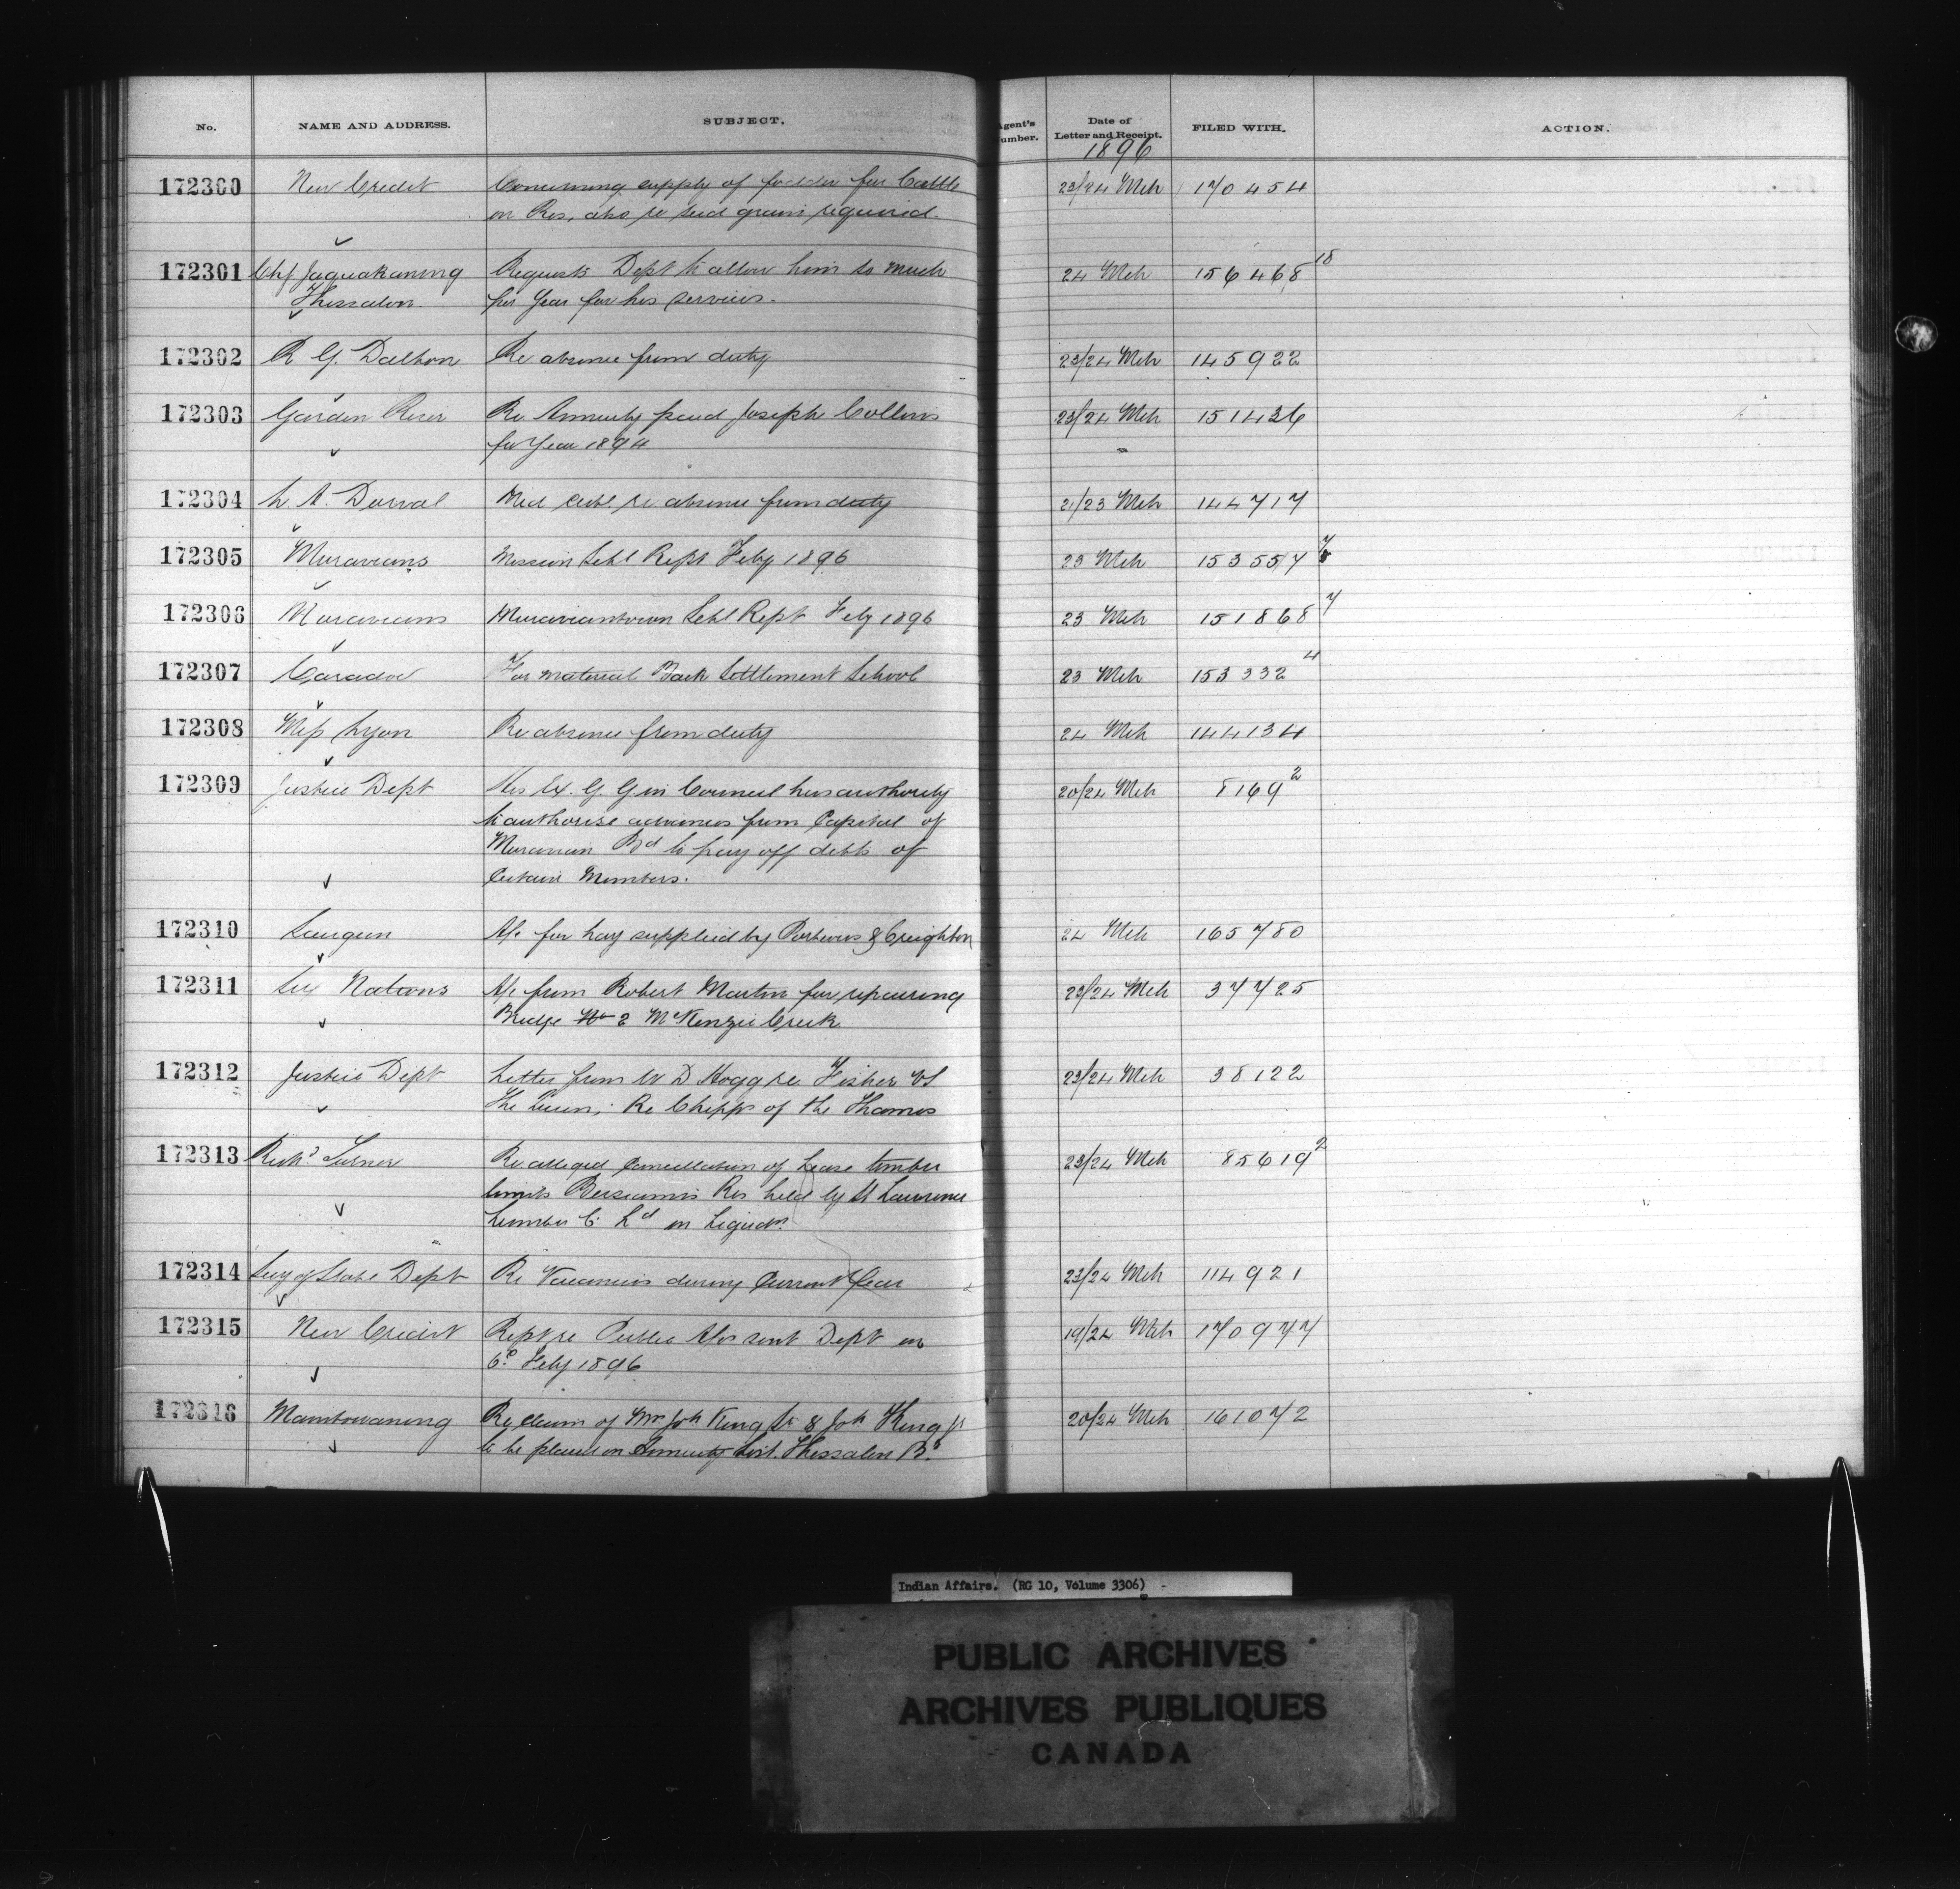 No. NAME AND ADDRESS. SUBJECT. Agent's Number. Date of Letter and Receipt. FILED WITH. ACTION.
1896
172300 New Credit Concerning supply of fodder for Cattle 23/24 Mch 170454
on Res, also re seed grain required.
172301 Chf Jaguakaning Requests Dept to allow him so much 24 Mch 156468 18
Thessalon. per Year for his services.
172302 R G. Dalton Re absence from duty 23/24 Mch 145922
172303 Garden River Re Annuity paid Joseph Collins 23/24 Mch 151436
for Year 1894
172304 L. A. Dorval Med cert. re absence from duty 21/23 Mch 144717
172305 Moravians Mission Schl Rept Feby 1896 23 Mch 153557 7
172306 Moravians Moraviantown Schl Rept Feby 1896 23 Mch 151868 7
172307 Caradoc For material Back Settlement School 23 Mch 153332 4
172308 Miss Lyon Re absence from duty 24 Mch 144134
172309 Justice Dept His Ex. G G in Council has authority 20/24 Mch 8169 2
to authorise advances from Capital of
Moravian Bd to pay off debts of
Certain Members.
172310 Saugeen A/c for hay supplied by Porteous & Creighton 24 Mch 165780
172311 Six Nations A/c from Robert Martin for repairing 23/24 Mch 37725
Bridge No 2 McKenzie Creek
172312 Justice Dept Letter from W D Hogg re Fisher vs 23/24 Mch 38122
The Queen, Re Chipps of the Thames
172313 Richd Turner Re alleged Cancellation of Lease timber 23/24 Mch 85619 2
limits Bersimis Res held by St Lawrence
Lumber Co Ld in Liquidn.
172314 Secy of State Dept Re Vacancies during Current Year 23/24 Mch 114921
172315 New Credit Rept re Public A/cs sent Dept on 19/24 Mch 170977
6th Feby 1896
172316 Manitowaning Re claim of Mrs Joh King Sr & Joh King Jr 20/24 Mch 161072
to be placed on Annuity List. Thessalon Bd.
Indian Affairs. (RG 10, Volume 3306)
PUBLIC ARCHIVES
ARCHIVES PUBLIQUES
CANADA